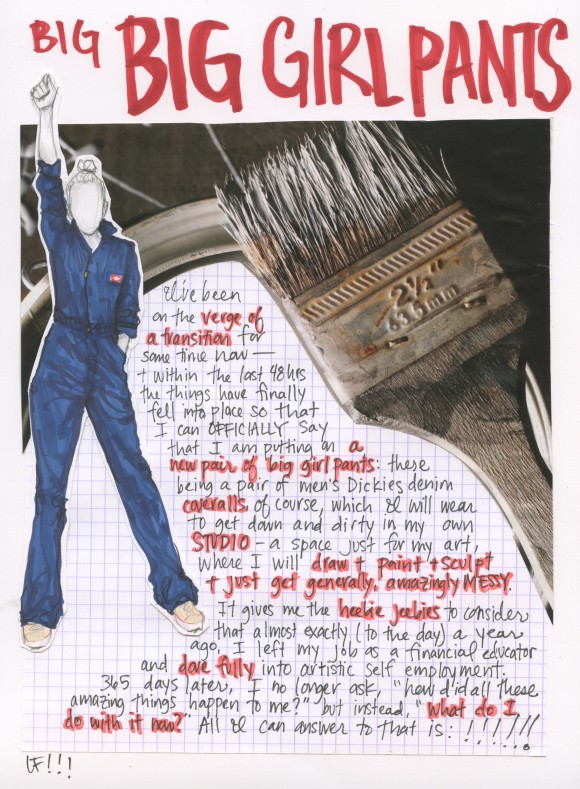 BIG BIG GIRL PANTS
2½"
63.5mm
I've been
on the verge of
a transition for
some time now —
+ within the last 48 hrs
the things have finally
fell into place so that
I can OFFICIALLY say
that I am putting on a
new pair of big girl pants: these
being a pair of men's Dickies denim
coveralls, of course, which I will wear
to get down and dirty in my own
STUDIO - a space just for my art,
where I will draw + paint + sculpt
+ just get generally, amazingly MESSY.
It gives me the heebie jeebies to consider
that almost exactly (to the day) a year
ago, I left my job as a financial educator
and dove fully into artistic self employment.
365 days later, I no longer ask, "how did all these
amazing things happen to me?" but instead, "what do I
do with it now?" All I can answer to that is: !!!!!!!
LF!!!